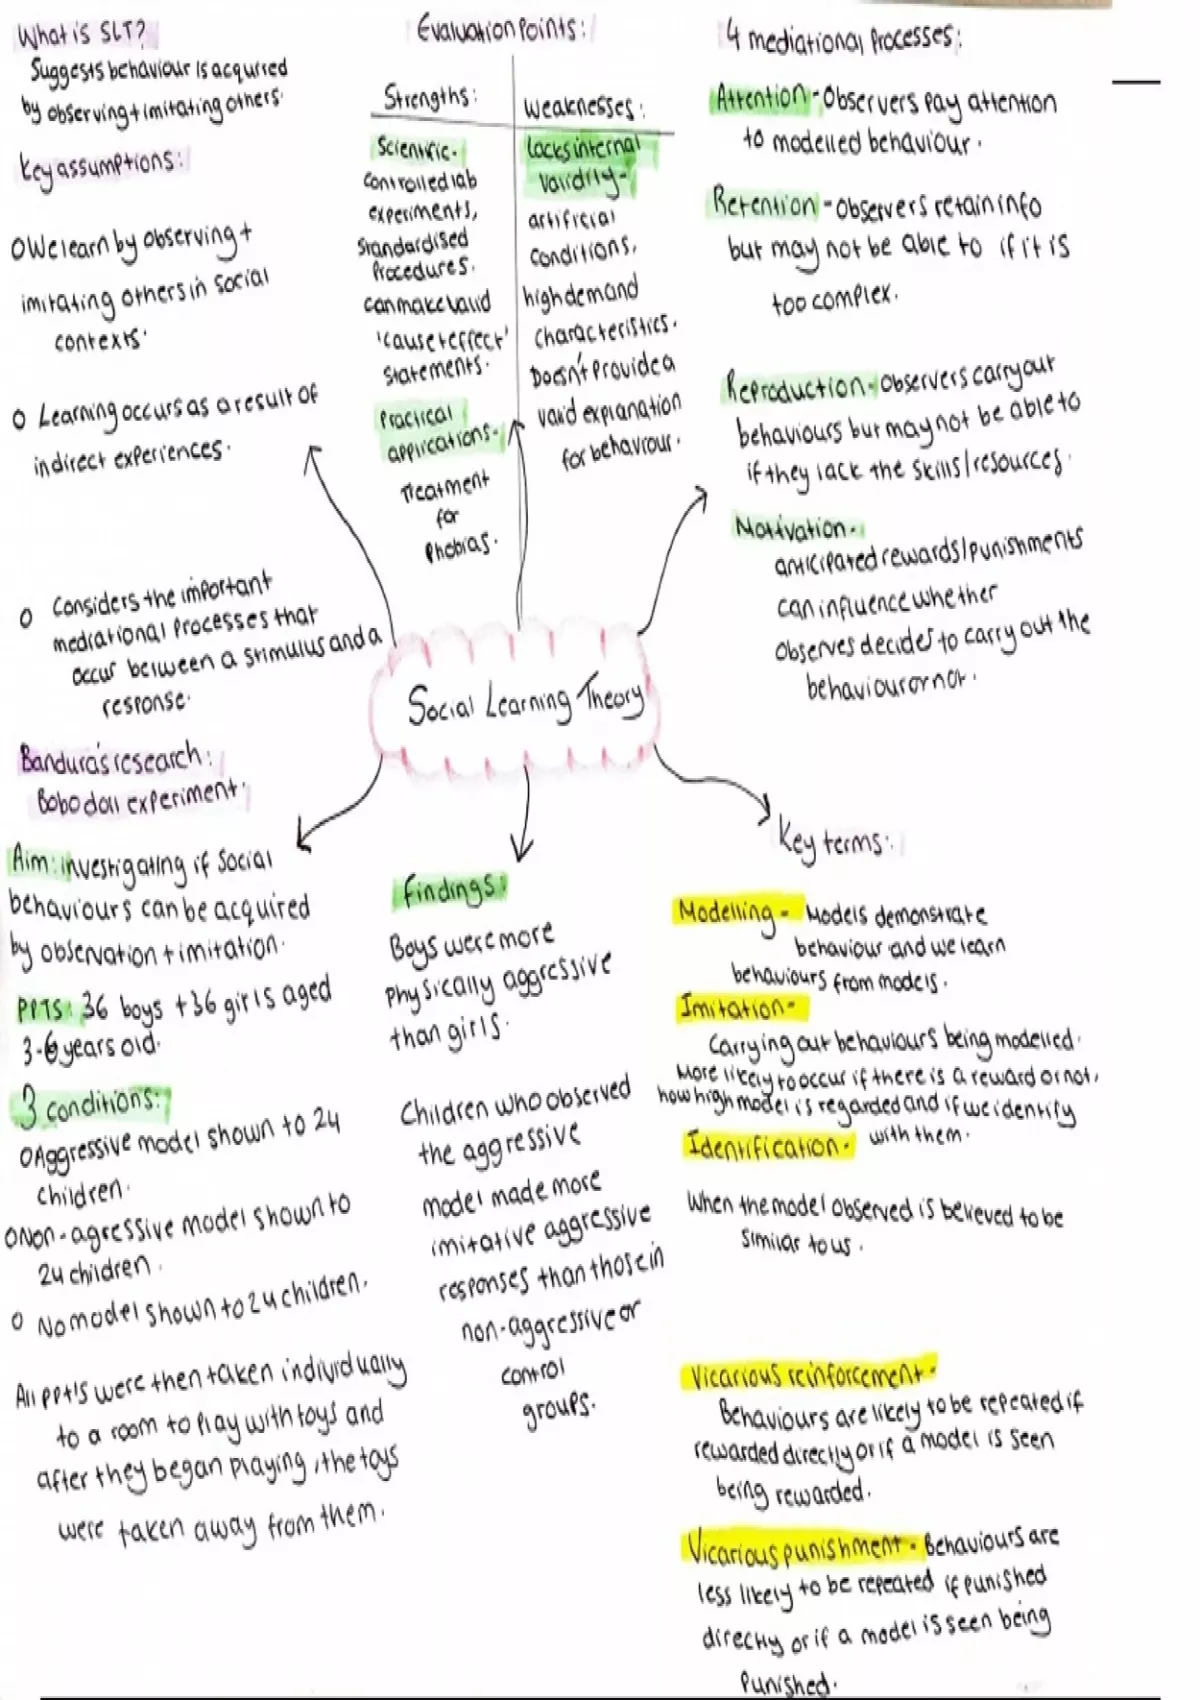 What is SLT?
Suggests behaviour is acquired
by observing + imitating others.
Key assumptions:
O We learn by observing +
imitating others in social
contexts.
O Learning occurs as a result of
indirect experiences.
O Considers the important
mediational processes that
occur between a stimulus and a
response.
Evaluation Points:
Strengths:
Scientific-
controlled lab
experiments,
standardised
Procedures.
can make valid
'cause + effect'
statements.
Practical
applications-
Treatment
for
Phobias.
Weaknesses:
Lacks internal
validity-
artificial
conditions,
high demand
characteristics.
Doesn't Provide a
valid explanation
for behaviour.
4 mediational Processes:
Attention - Observers Pay attention
to modelled behaviour.
Retention - observers retain info
but may not be able to if it is
too complex.
Reproduction - observers carry out
behaviours but may not be able to
if they lack the skills/resources.
Motivation-
anticipated rewards/punishments
can influence whether
observes decides to carry out the
behaviour or not.
Social Learning Theory
Bandura's research:
Bobo doll experiment.
Aim: investigating if social
behaviours can be acquired
by observation + imitation.
PPTS: 36 boys + 36 girls aged
3-6 years old.
3 conditions:
O Aggressive model shown to 24
children.
O Non-agressive model shown to
24 children.
O No model shown to 24 children.
All ppt's were then taken individually
to a room to play with toys and
after they began playing, the toys
were taken away from them.
Findings:
Boys were more
Physically aggressive
than girls.
Children who observed
the aggressive
model made more
imitative aggressive
responses than those in
non-aggressive or
control
groups.
Key terms:
Modelling - Models demonstrate
behaviour and we learn
behaviours from models.
Imitation -
Carrying out behaviours being modelled.
More likely to occur if there is a reward or not,
how high model is regarded and if we identify
with them.
Identification -
When the model observed is believed to be
similar to us.
Vicarious reinforcement -
Behaviours are likely to be repeated if
rewarded directly or if a model is seen
being rewarded.
Vicarious punishment - Behaviours are
less likely to be repeated if punished
directly or if a model is seen being
Punished.